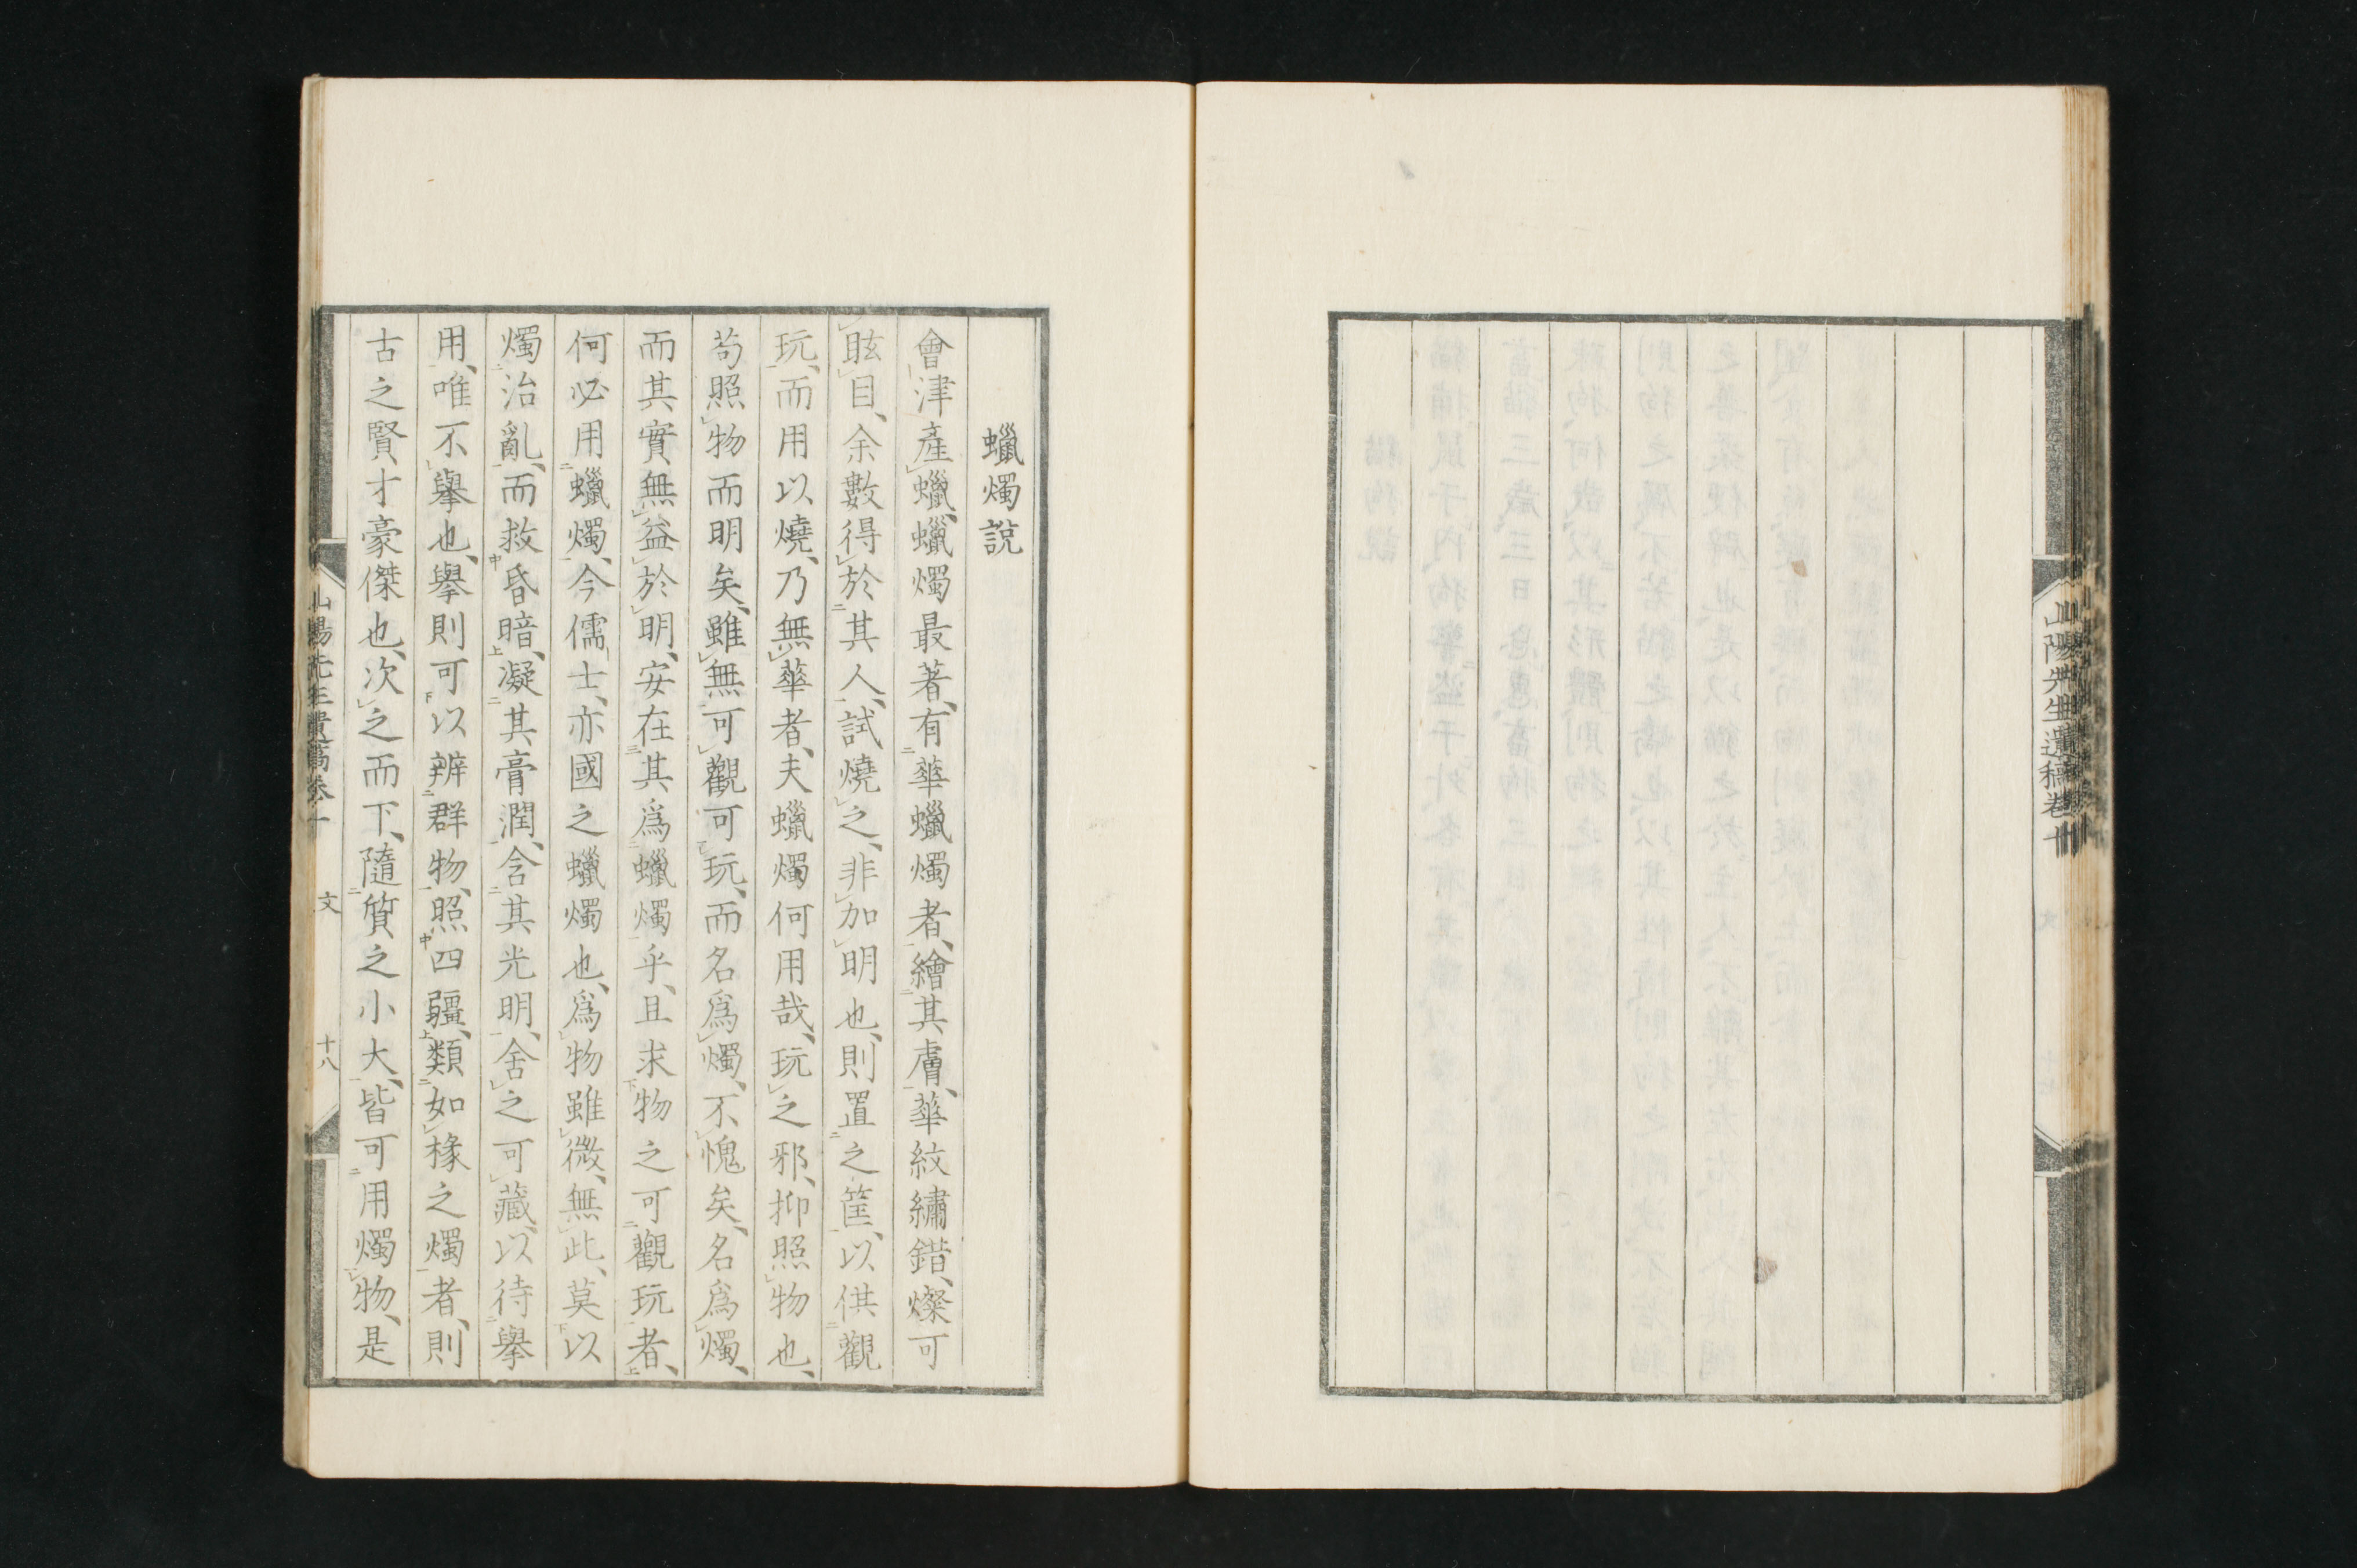 山陽先生遺稿卷十
蠟燭說
會津產蠟、蠟燭最著、有華蠟燭者、繪其膚、華紋繡錯、燦可
眩目、余數得於其人、試燒之、非加明也、則置之筐、以供觀
玩、而用以燒、乃無華者、夫蠟燭何用哉、玩之邪、抑照物也、
苟照物而明矣、雖無可觀可玩、而名爲燭、不愧矣、名爲燭、
而其實無益於明、安在其爲蠟燭乎、且求物之可觀玩者、
何必用蠟燭、今儒士、亦國之蠟燭也、爲物雖微、無此、莫以
燭治亂、而救昏暗、凝其膏潤、含其光明、舍之可藏、以待擧
用、唯不擧也、擧則可以辨群物、照四疆、類如椽之燭者、則
古之賢才豪傑也、次之而下、隨質之小大、皆可用燭物、是
山陽先生遺稿卷十 文 十八